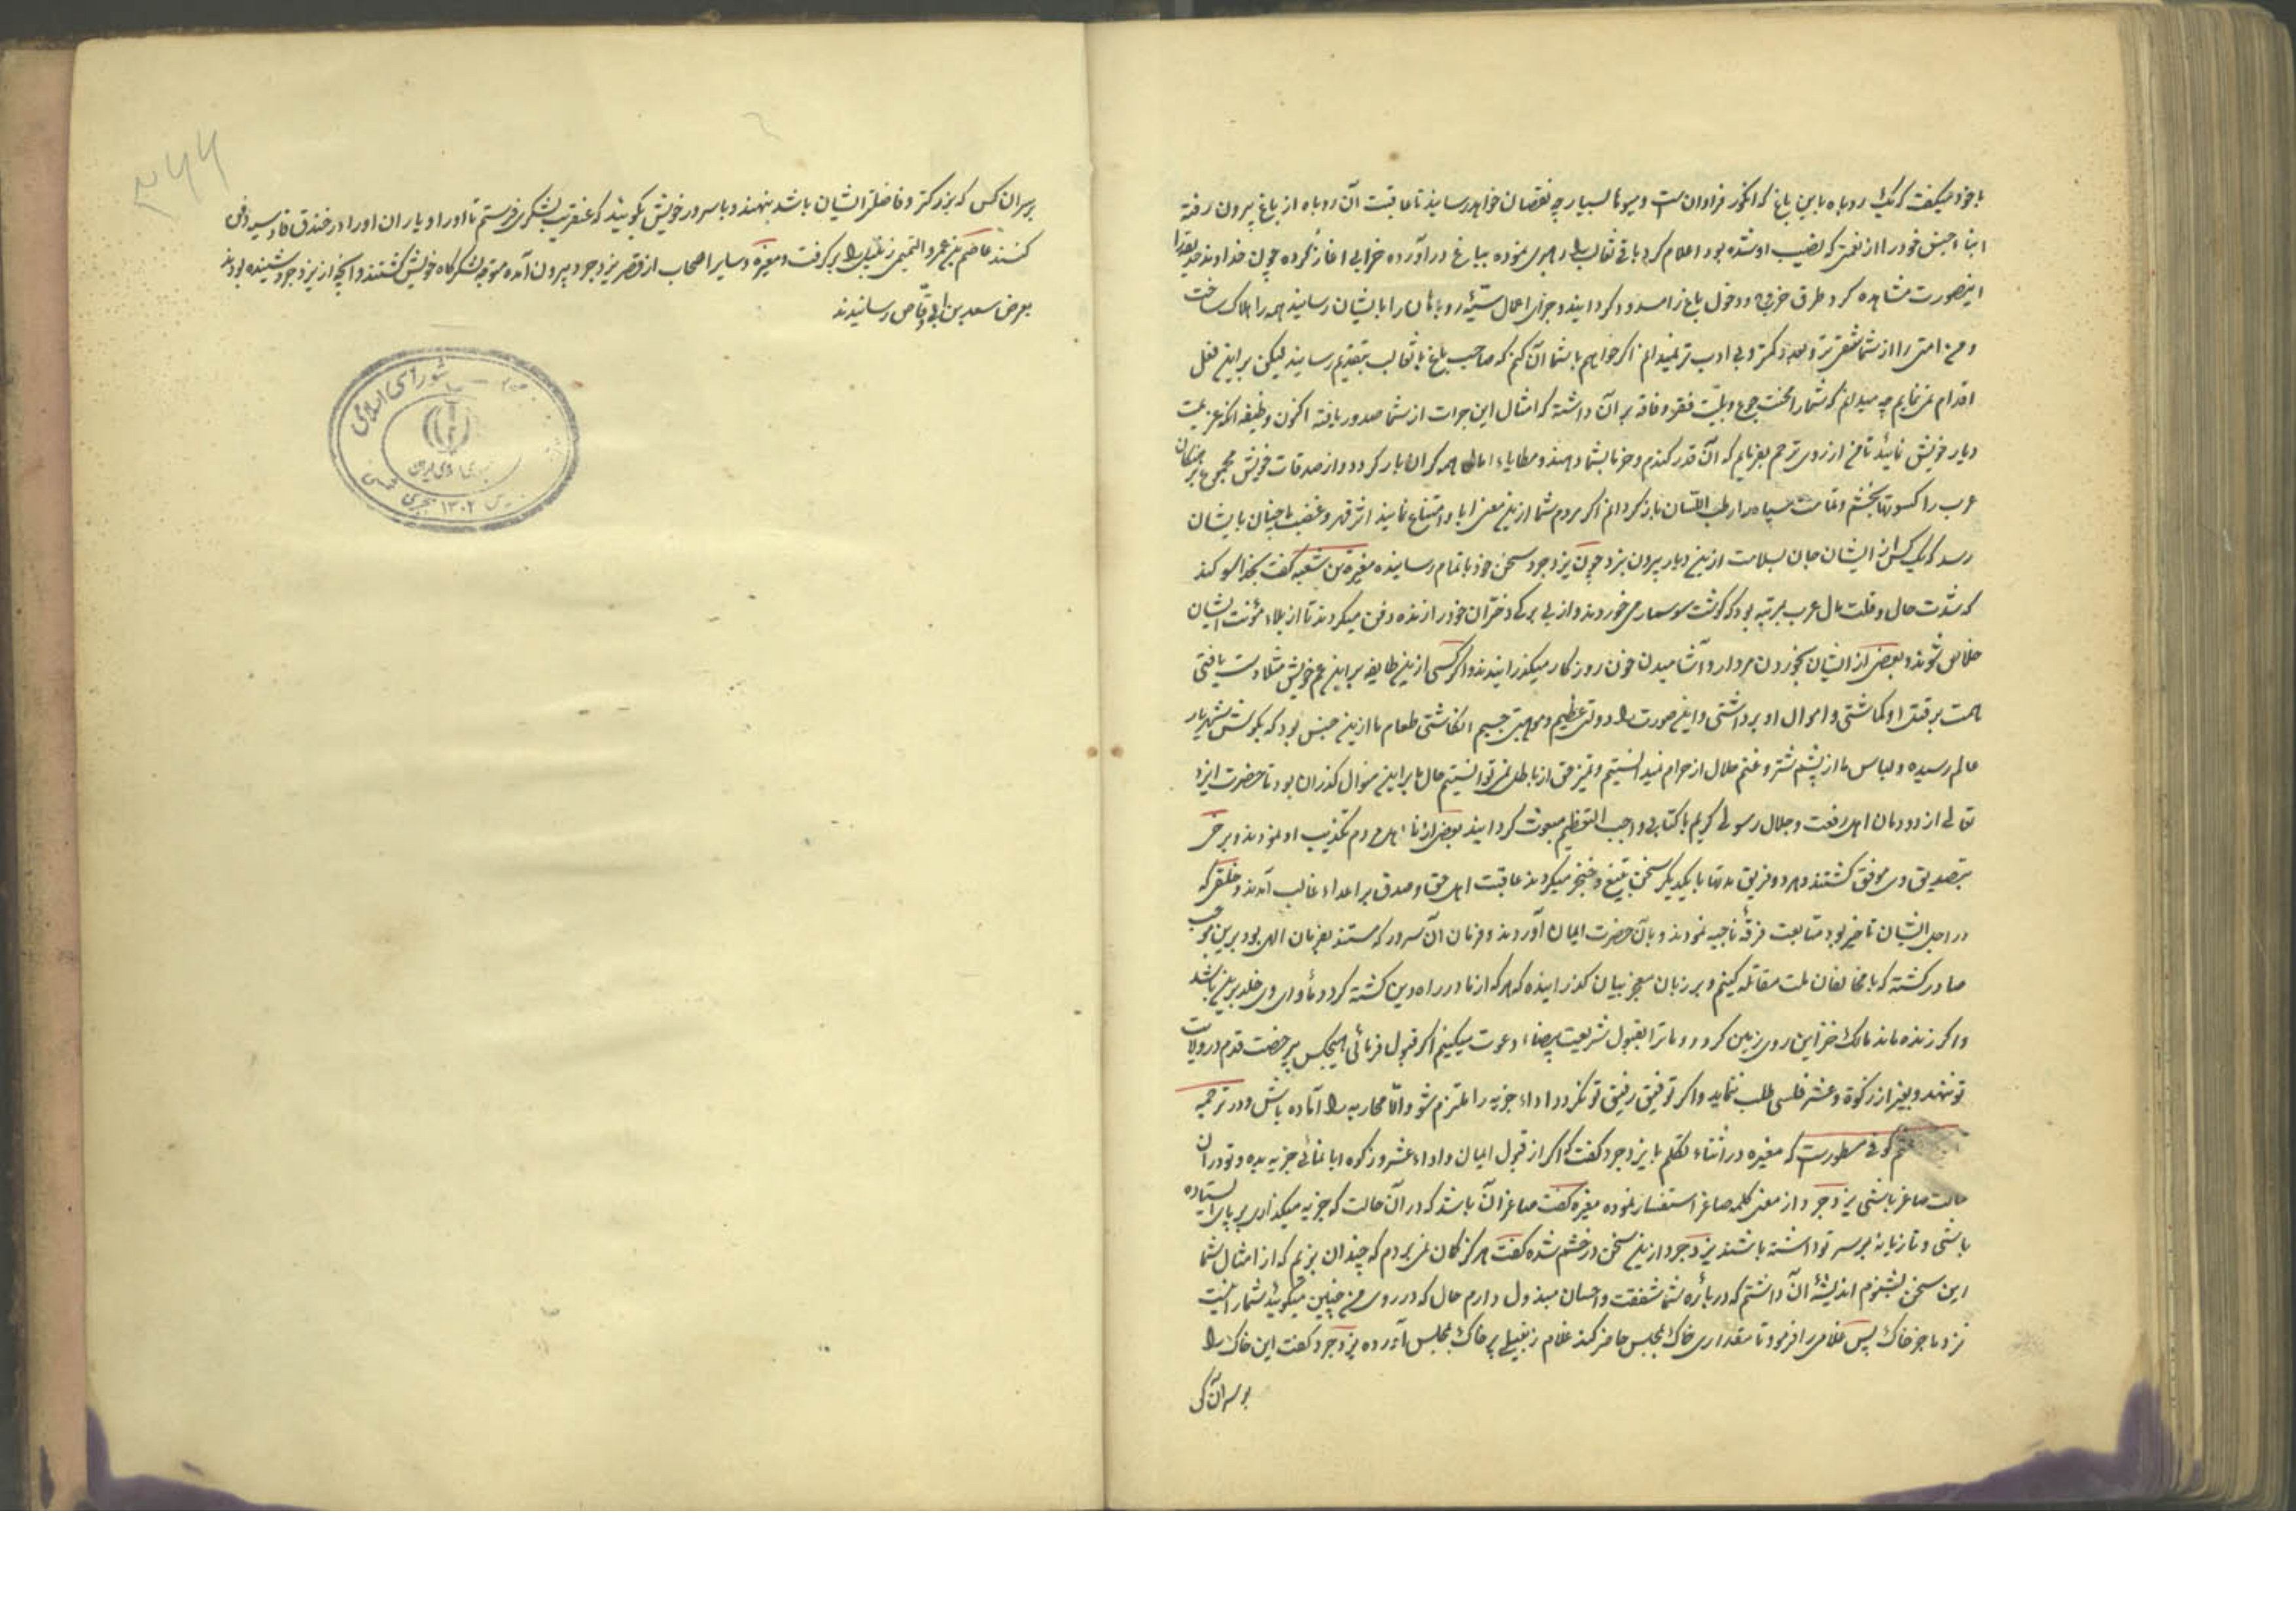 با خود میگفت که یک روباه باین باغ که انگور فراوان است و میوها بسیار چه نقصان خواهد رسانید تا عاقبت آن روباه از باغ بیرون رفته
ابناء جنس خود را از نعمتی که نصیب او شده بود اعلام کرد باقی ثعالب را رهبری نموده بباغ درآورده خرابی آغاز کرده چون خداوند حدیقه
اینصورت مشاهده کرد طرق خروج و دخول باغ را مسدود گردانید و جزای اعمال سیئه روباهان را بایشان رسانید همه را هلاک ساخت
و من امتی را از شما شقی تر و بعدد کمتر و بی ادب تر نمیدانم اگر خواهم با شما آن کنم که صاحب باغ با ثعالب بتقدیم رسانید لیکن بر این فعل
اقدام نمی نمایم چه میدانم که شما را محنت جوع و بلیت فقر و فاقه بر آن داشته که امثال این جرات از شما صدور یافته اکنون وظیفه آنکه عزیمت
دیار خویش نمائید تا من از روی ترحم بفرمایم که آن قدر گندم و خرما بشما دهند و مطایاء اهالی همه گران بار گردد و از صدقات خویش مجموع برهنگان
عرب را کسوتها بخشم و تمامت سپاه را رطب اللسان بازگردانم اگر مردم شما ازین معنی ابا و امتناع نمایند اثر قهر و غضب ما چنان بایشان
رسد که یک کس از ایشان جان بسلامت ازین دیار بیرون نبرد چون یزدجرد سخن خود باتمام رسانیده مغیرة بن شعبه گفت بخدا سوگند
که شدت حال و قلت مال عرب بمرتبه بود که گوشت سوسمار می خوردند و از بی برگی دختران خود را زنده دفن میکردند تا از بلاء مؤنت ایشان
خلاص شوند و بعضی از ایشان بخوردن مردار و آشامیدن خون روزگار میگذرانیدند و اگر کسی ازین طایفه بر ابن عم خویش مثلا دست یافتی
همت بر قتل او گماشتی و اموال او برداشتی و این صورت را دولتی عظیم و موهبتی جسیم انگاشتی طعام ما ازین جنس بود که بگوش شهریار
عالم رسیده و لباس ما از پشم شتر و غنم حلال از حرام نمیدانستیم و تمیز حق از باطل نمی توانستیم حال ما بر این منوال گذران بود تا حضرت ایزد
تعالی از دودمان اهل رفعت و جلال رسولی کریم با کتابی واجب التعظیم مبعوث گردانید بعضی از ما مردم تکذیب او نمودند و برخی
بتصدیق وی موفق گشتند و هر دو فریق مدتها با یکدیگر سخن بتیغ و خنجر میکردند عاقبت اهل حق و صدق بر اعداء غالب آمدند و خلقی که
در اجل ایشان تاخیر بود متابعت فرقه ناجیه نمودند و بآن حضرت ایمان آوردند و فرمان آن سرور که مستند بفرمان الهی بود برین موجب
صادر گشته که با مخالفان ملت مقاتله کنیم و بر زبان معجز بیان گذرانیده که هر که از ما در راه دین کشته گردد مأوای وی خلد برین باشد
و اگر زنده ماند مالک خزاین روی زمین گردد و ما ترا بقبول شریعت بیضاء دعوت میکنیم اگر قبول فرمائی هیچکس بی رخصت قدم در ولایت
تو ننهد و بغیر از زکوة و عشر فلسی طلب ننماید و اگر توفیق رفیق تو نگردد اداء جزیه را ملتزم شو و الا محاربه را آماده باش و در ترجمه
کوفی مسطورست که مغیره در اثناء تکلم با یزدجرد گفت که اگر از قبول ایمان و اداء عشر و زکوه ابا نمائی جزیه بده و تو در آن
حالت صاغر باشی یزدجرد از معنی کلمه صاغر استفسار نموده مغیره گفت صاغر آن باشد که در آن حالت که جزیه میگذاری بر پای ایستاده
باشی و تازیانه بر سر تو داشته باشند یزدجرد ازین سخن در خشم شده گفت هرگز گمان نمی بردم که چندان بزیم که از امثال شما
این سخن بشنوم اندیشه آن داشتم که درباره شما شفقت و احسان مبذول دارم حال که در روی من چنین میگوئید شما را نیست
نزد ما جز خاک پس غلامی را فرمود تا مقداری خاک بمجلس حاضر کند غلام زنبیلی پر خاک بمجلس آورده یزدجرد گفت این خاک را
بر سر آن کس
بر سر آن کس که بزرکتر و فاضلتر ایشان باشد بنهند و با سرور خویش بگویند که عنقریب لشکری فرستم تا او را و یاران او را در خندق قادسیه دفن
کنند عاصم بن عمرو التمیمی زنبیل را برگرفت و مغیره و سایر اصحاب از قصر یزدجرد بیرون آمده متوجه لشکرگاه خویش گشتند و آنچه از یزدجرد شنیده بودند
بعرض سعد بن ابی وقاص رسانیدند
شورای اسلامی
۱۳۰۲ هجری شمسی